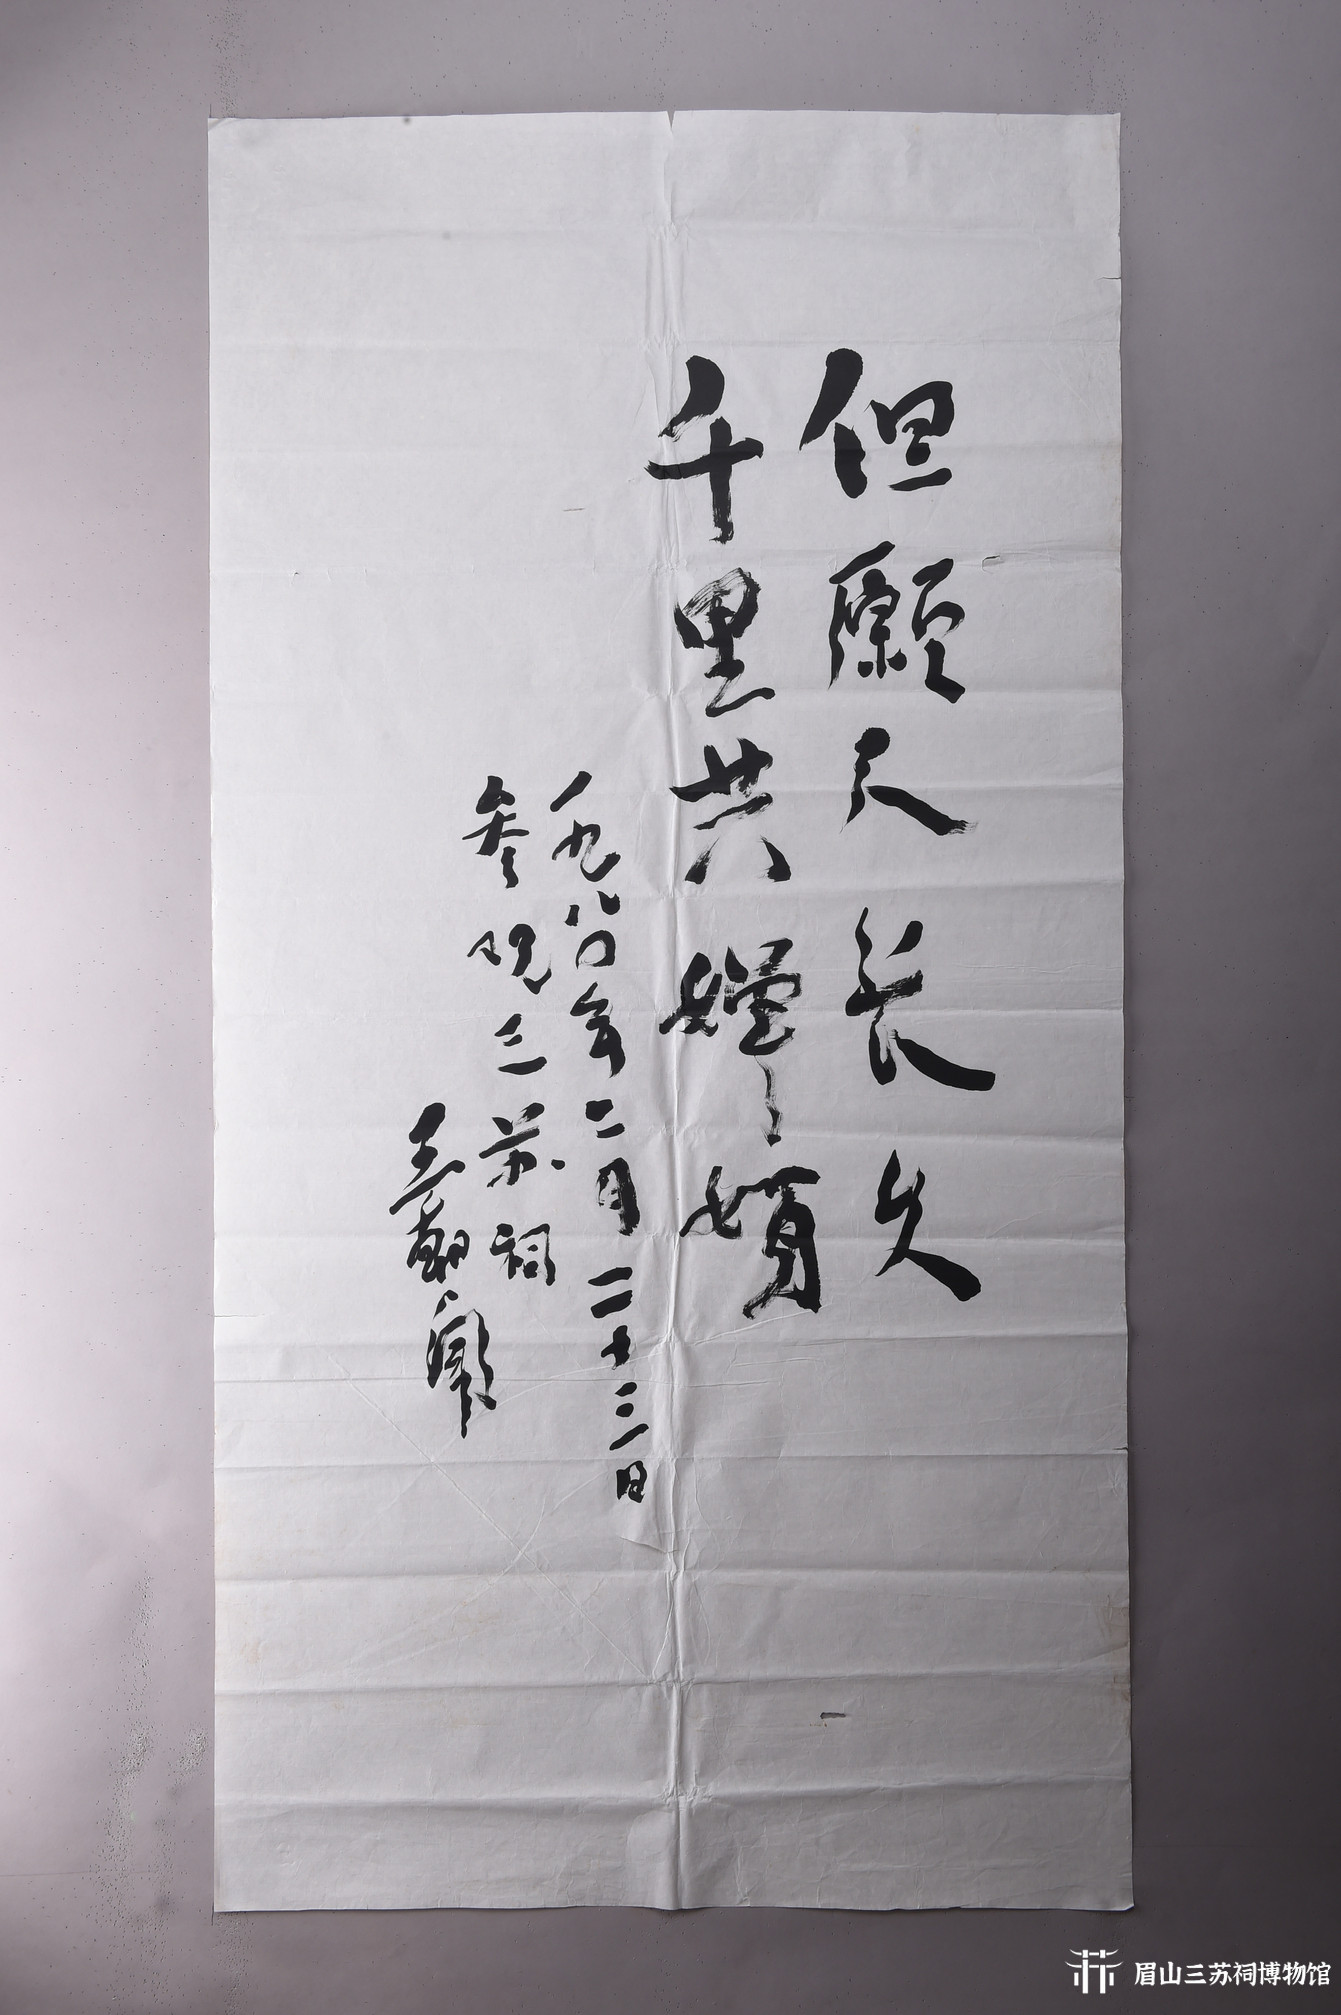 但願人長久
千里共嬋娟
一九八〇年二月二十三日
参观三苏祠
王朝聞
眉山三苏祠博物馆